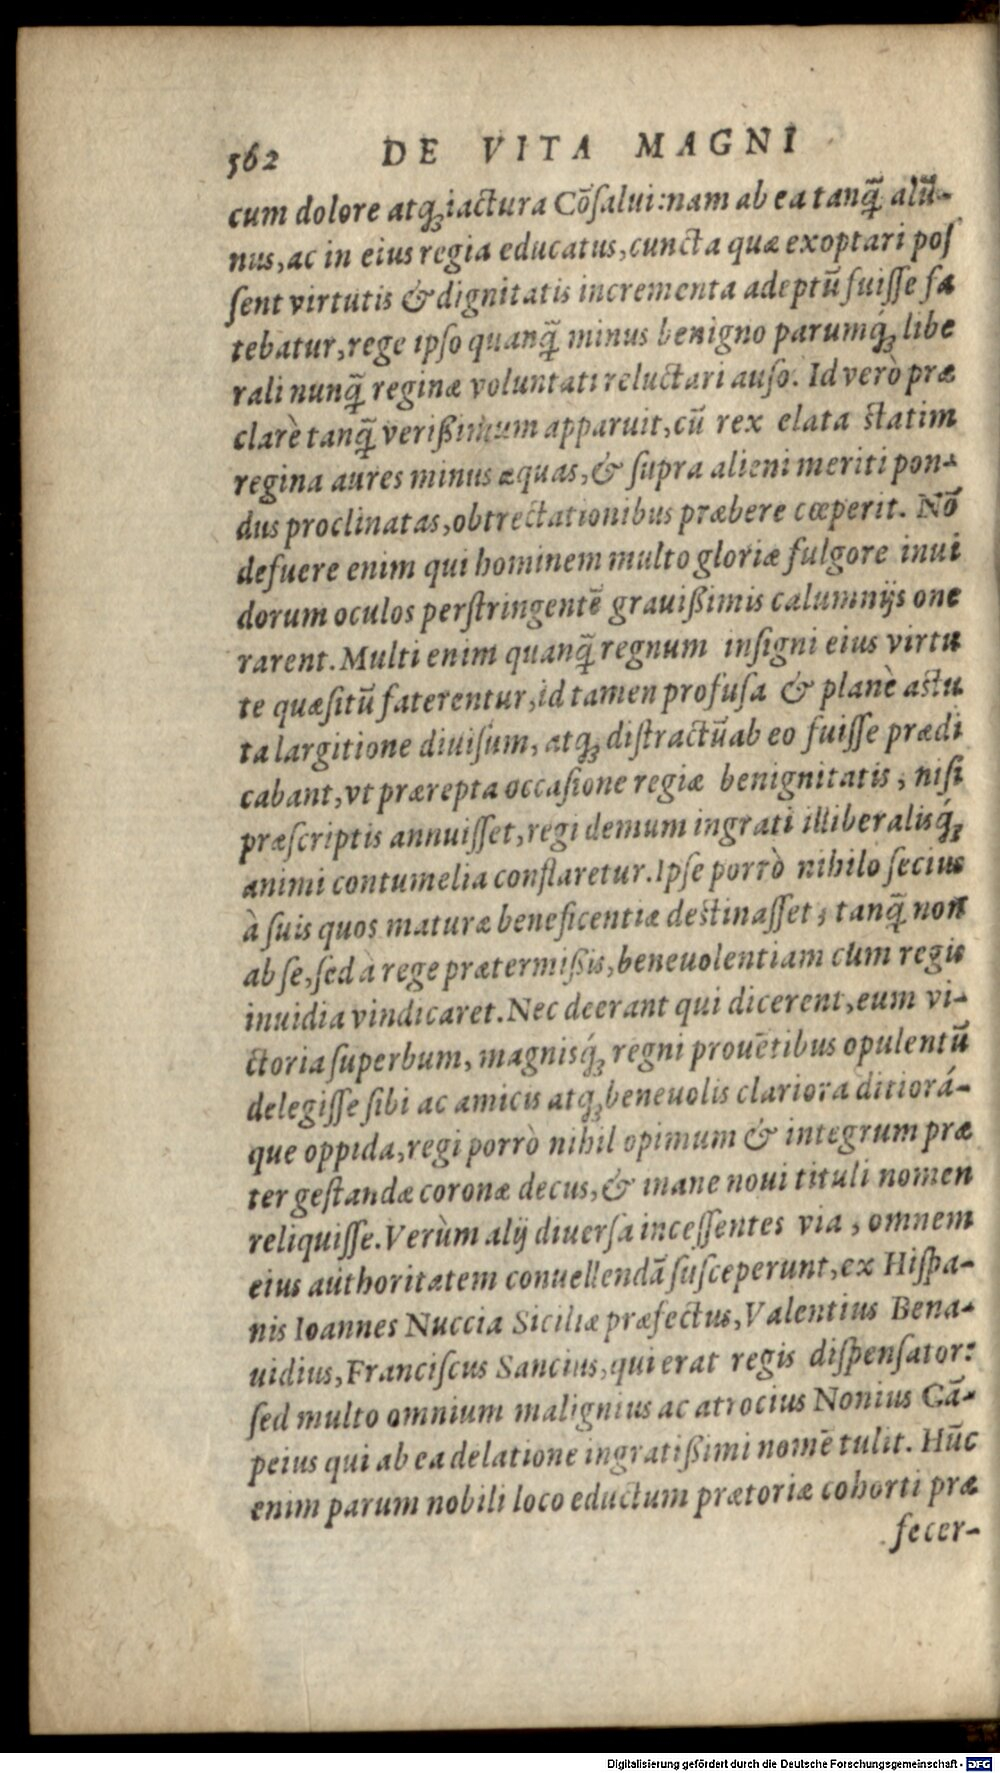 562 DE VITA MAGNI
cum dolore atq; iactura Cõsalui: nam ab ea tanq̃ alũ-
nus, ac in eius regia educatus, cuncta quæ exoptari pos
sent virtutis & dignitatis incrementa adeptũ fuisse fa
tebatur, rege ipso quanq̃ minus benigno parumq́; libe
rali nunq̃ reginæ voluntati reluctari auso. Id verò præ
clarè tanq̃ verißimum apparuit, cũ rex elata statim
regina aures minus æquas, & supra alieni meriti pon-
dus proclinatas, obtrectationibus præbere cœperit. Nõ
defuere enim qui hominem multo gloriæ fulgore inui
dorum oculos perstringentẽ grauißimis calumnijs one
rarent. Multi enim quanq̃ regnum insigni eius virtu
te quæsitũ faterentur, id tamen profusa & planè astu
ta largitione diuisum, atq; distractũ ab eo fuisse prædi
cabant, vt prærepta occasione regiæ benignitatis, nisi
præscriptis annuisset, regi demum ingrati illiberalisq́;
animi contumelia conflaretur. Ipse porrò nihilo secius
à suis quos maturæ beneficentiæ destinasset, tanq̃ non
ab se, sed à rege prætermißis, beneuolentiam cum regis
inuidia vindicaret. Nec deerant qui dicerent, eum vi-
ctoria superbum, magnisq́; regni prouẽtibus opulentũ
delegisse sibi ac amicis atq; beneuolis clariora ditiorá-
que oppida, regi porrò nihil opimum & integrum præ
ter gestandæ coronæ decus, & inane noui tituli nomen
reliquisse. Verùm alij diuersa incessentes via, omnem
eius authoritatem conuellendã susceperunt, ex Hispa-
nis Ioannes Nuccia Siciliæ præfectus, Valentius Bena-
uidius, Franciscus Sancius, qui erat regis dispensator:
sed multo omnium malignius ac atrocius Nonius Cã-
peius qui ab ea delatione ingratißimi nomẽ tulit. Hũc
enim parum nobili loco eductum prætoriæ cohorti præ
fecer-
Digitalisierung gefördert durch die Deutsche Forschungsgemeinschaft - DFG